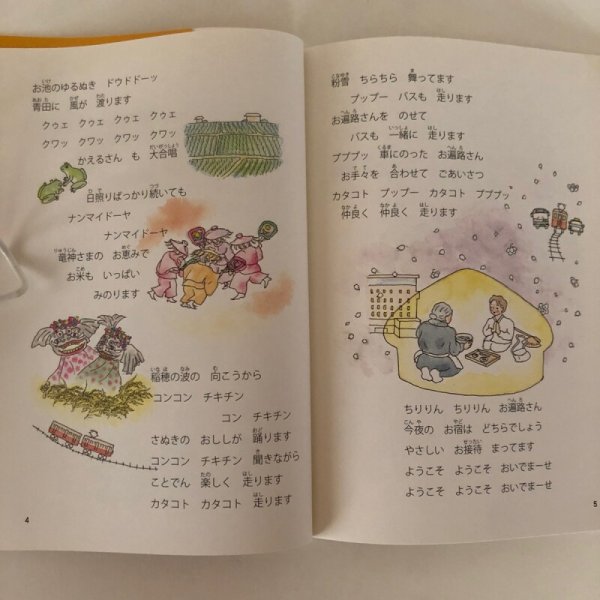 お池のゆるぬき　ドウドドーッ
青田に　風が　渡ります
クゥェ　クゥェ　クゥェ　クゥェ
クワッ　クワッ　クワッ　クワッ
かえるさん　も　大合唱
日照りばっかり続いても
ナンマイドーヤ
ナンマイドーヤ
竜神さまの　お恵みで
お米も　いっぱい
みのります
稲穂の波の　向こうから
コンコン　チキチン
コン　チキチン
さぬきの　おししが　踊ります
コンコン　チキチン　聞きながら
ことでん　楽しく　走ります
カタコト　カタコト　走ります
4
粉雪　ちらちら　舞ってます
プップー　バスも　走ります
お遍路さんを　のせて
バスも　一緒に　走ります
プププッ　車にのった　お遍路さん
お手々を　合わせて　ごあいさつ
カタコト　プップー　カタコト　プププッ
仲良く　仲良く　走ります
ちりりん　ちりりん　お遍路さん
今夜の　お宿は　どちらでしょう
やさしい　お接待　まってます
ようこそ　ようこそ　おいでまーせ
ようこそ　ようこそ　おいでまーせ
5